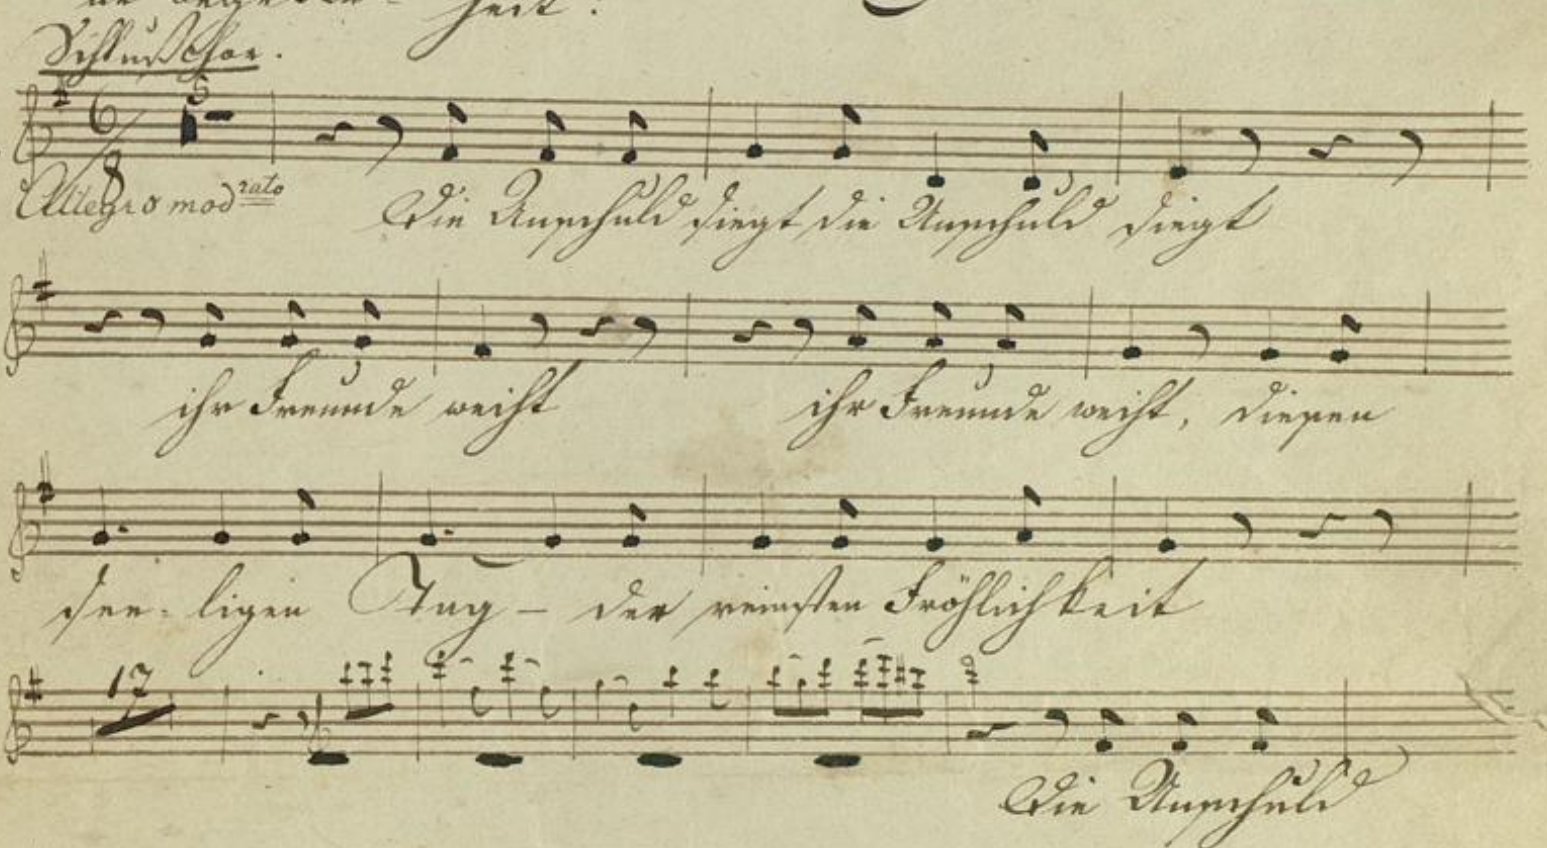 heit.
Schlußchor.
5
6/8
Allegro modrato
Die Unschuld siegt die Unschuld siegt
ihr Freunde weiht ihr Freunde weiht, diesen
see- ligen Tag – der reinsten Fröhlichkeit
17
Die Unschuld